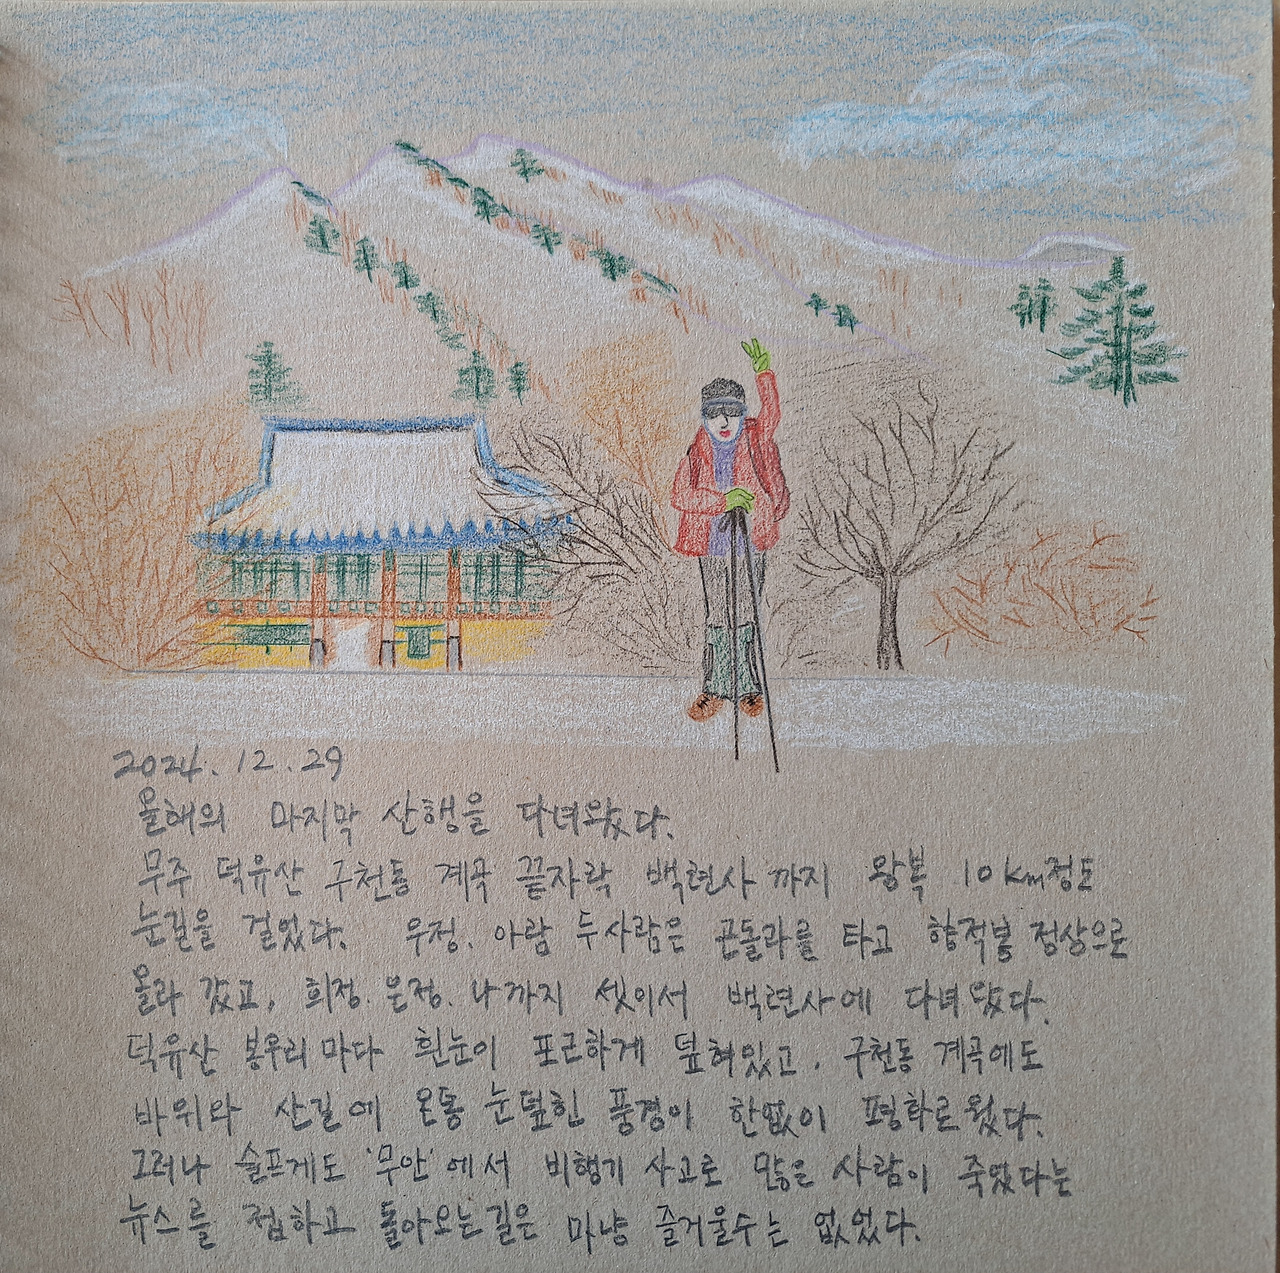 2024. 12. 29
올해의 마지막 산행을 다녀왔다.
무주 덕유산 구천동 계곡 끝자락 백련사 까지 왕복 10km정도
눈길을 걸었다. 우정. 아람 두사람은 곤돌라를 타고 향적봉 정상으로
올라 갔고, 희정. 은정. 나까지 셋이서 백련사에 다녀왔다.
덕유산 봉우리마다 흰눈이 포근하게 덮혀있고, 구천동 계곡에도
바위와 산길에 온통 눈덮힌 풍경이 한없이 평화로웠다.
그러나 슬프게도 '무안'에서 비행기 사고로 많은 사람이 죽었다는
뉴스를 접하고 돌아오는길은 마냥 즐거울수는 없었다.